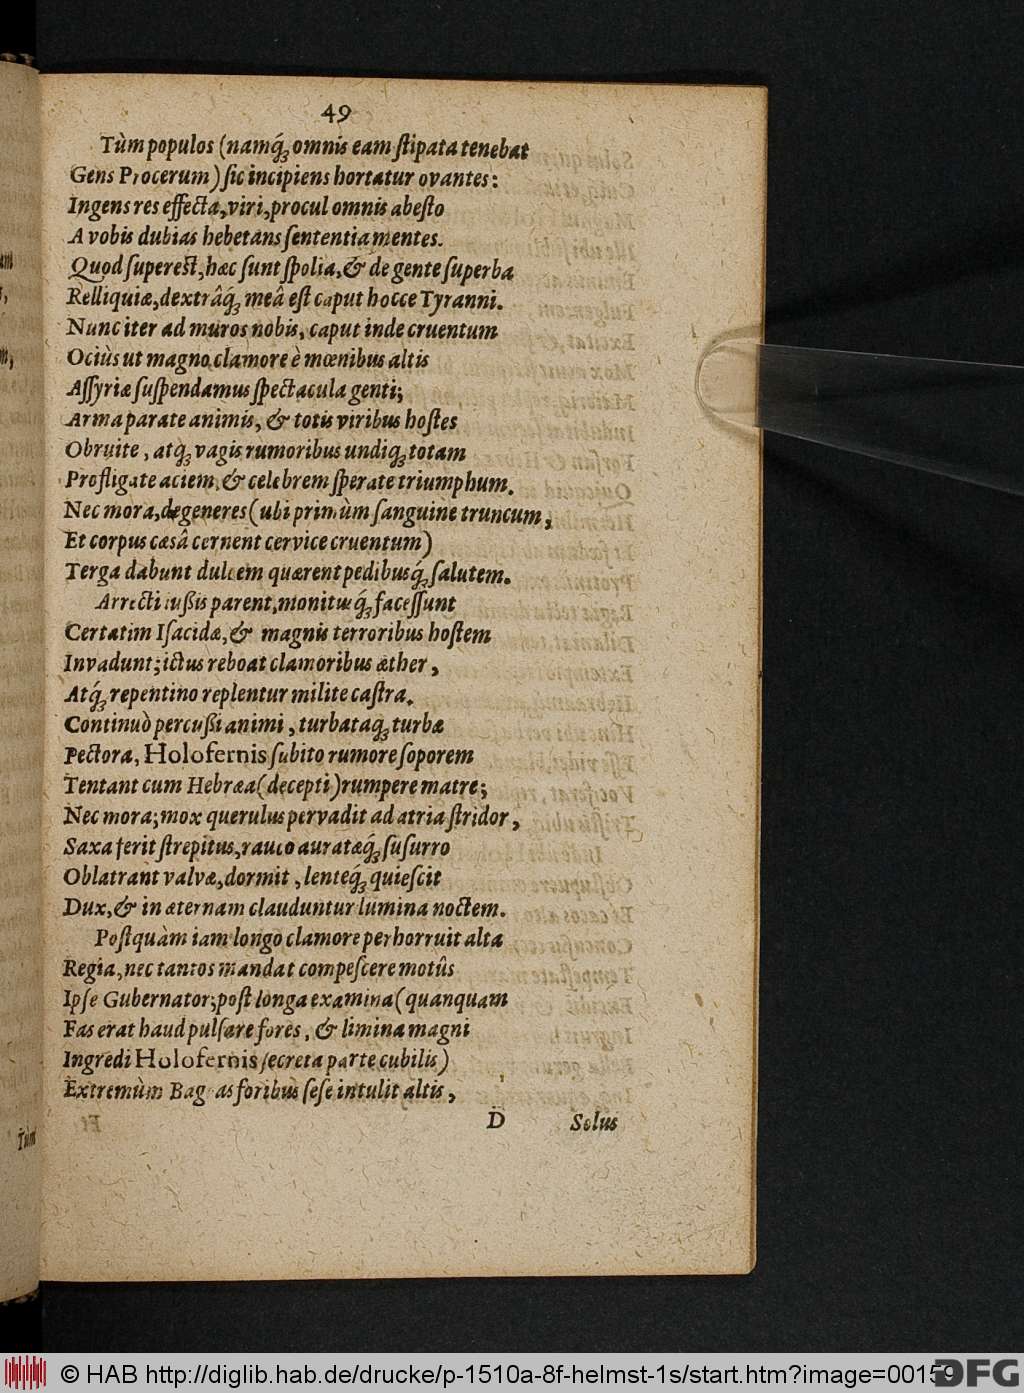 49
Tùm populos (namq́; omnis eam ſtipata tenebat
Gens Procerum) ſic incipiens hortatur ovantes:
Ingens res effecta, viri, procul omnis abeſto
A vobis dubias hebetans ſententia mentes.
Quod ſupereſt, hæc ſunt ſpolia, & de gente ſuperba
Relliquiæ, dextrâq́; meâ eſt caput hocce Tyranni.
Nunc iter ad muros nobis, caput inde cruentum
Ociùs ut magno clamore è mœnibus altis
Aſſyriæ ſuſpendamus ſpectacula genti;
Arma parate animis, & totis viribus hoſtes
Obruite, atq́; vagis rumoribus undiq́; totam
Profligate aciem, & celebrem ſperate triumphum.
Nec mora, degeneres (ubi primùm ſanguine truncum,
Et corpus cæsâ cernent cervice cruentum)
Terga dabunt dulcem quærent pedibusq́; ſalutem.
Arrecti iußis parent, monituq́; faceſſunt
Certatim Iſacidæ, & magnis terroribus hoſtem
Invadunt; ictus reboat clamoribus æther,
Atq́; repentino replentur milite caſtra.
Continuò percußi animi, turbataq́; turbæ
Pectora, Holofernis ſubito rumore ſoporem
Tentant cum Hebræa (decepti) rumpere matre;
Nec mora; mox querulus pervadit ad atria ſtridor,
Saxa ferit ſtrepitus, rauco auratæq́; ſuſurro
Oblatrant valvæ, dormit, lenteq́; quieſcit
Dux, & in æternam clauduntur lumina noctem.
Poſtquàm iam longo clamore perhorruit alta
Regia, nec tantos mandat compeſcere motûs
Ipſe Gubernator; poſt longa examina (quanquam
Fas erat haud pulſare fores, & limina magni
Ingredi Holofernis ſecreta parte cubilis)
Extremùm Bagoas foribus ſeſe intulit altis,
D Solus
© HAB http://diglib.hab.de/drucke/p-1510a-8f-helmst-1s/start.htm?image=00159
DFG